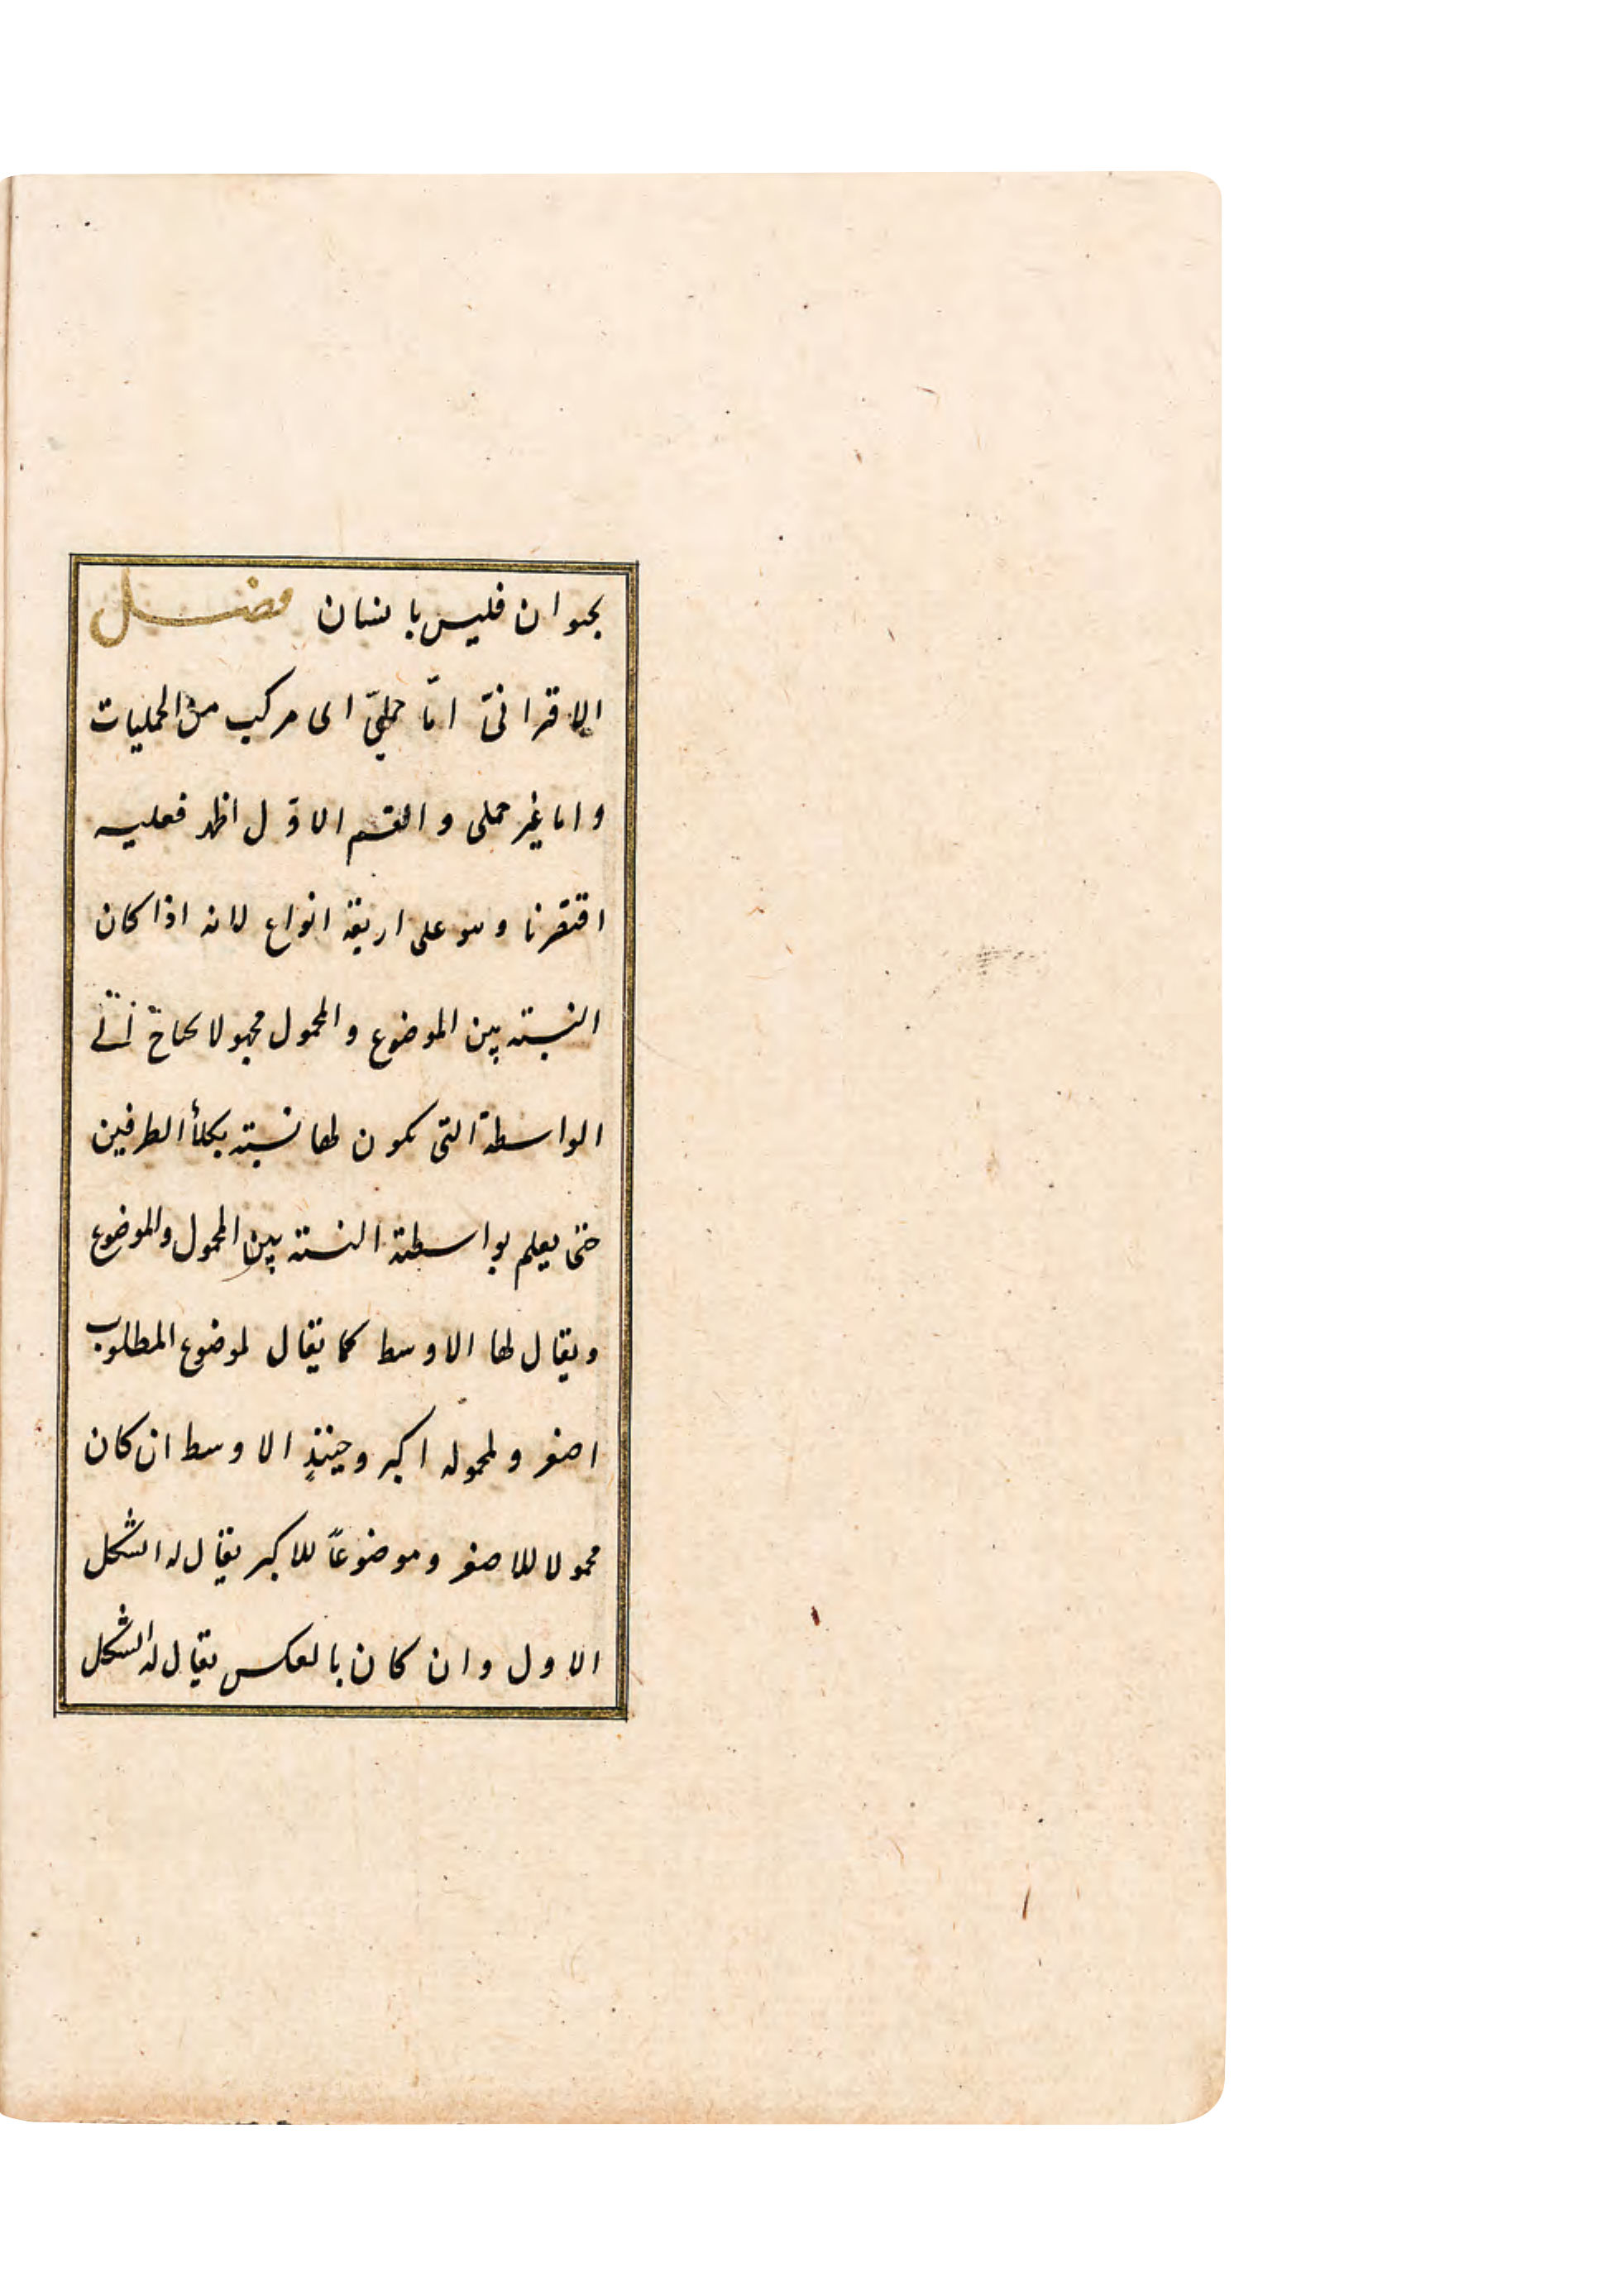 بحيوان فليس بانسان فصل
الاقترانىّ امّا حملىّ اى مركب من الحمليات
واما غير حملى والقسم الاوّل اظهر فعليه
اقتصرنا وهو على اربعة انواع لانه اذا كان
النسبة بين الموضوع والمحمول مجهولا يحتاج الى
الواسطة التى يكون لها نسبة بكلا الطرفين
حتى يعلم بواسطته النسبة بين المحمول والموضوع
ويقال لها الاوسط كما يقال لموضوع المطلوب
اصغر ولمحموله اكبر وحينئذٍ الاوسط ان كان
محمولا للاصغر وموضوعاً للاكبر يقال له الشكل
الاول وان كان بالعكس يقال له الشكل